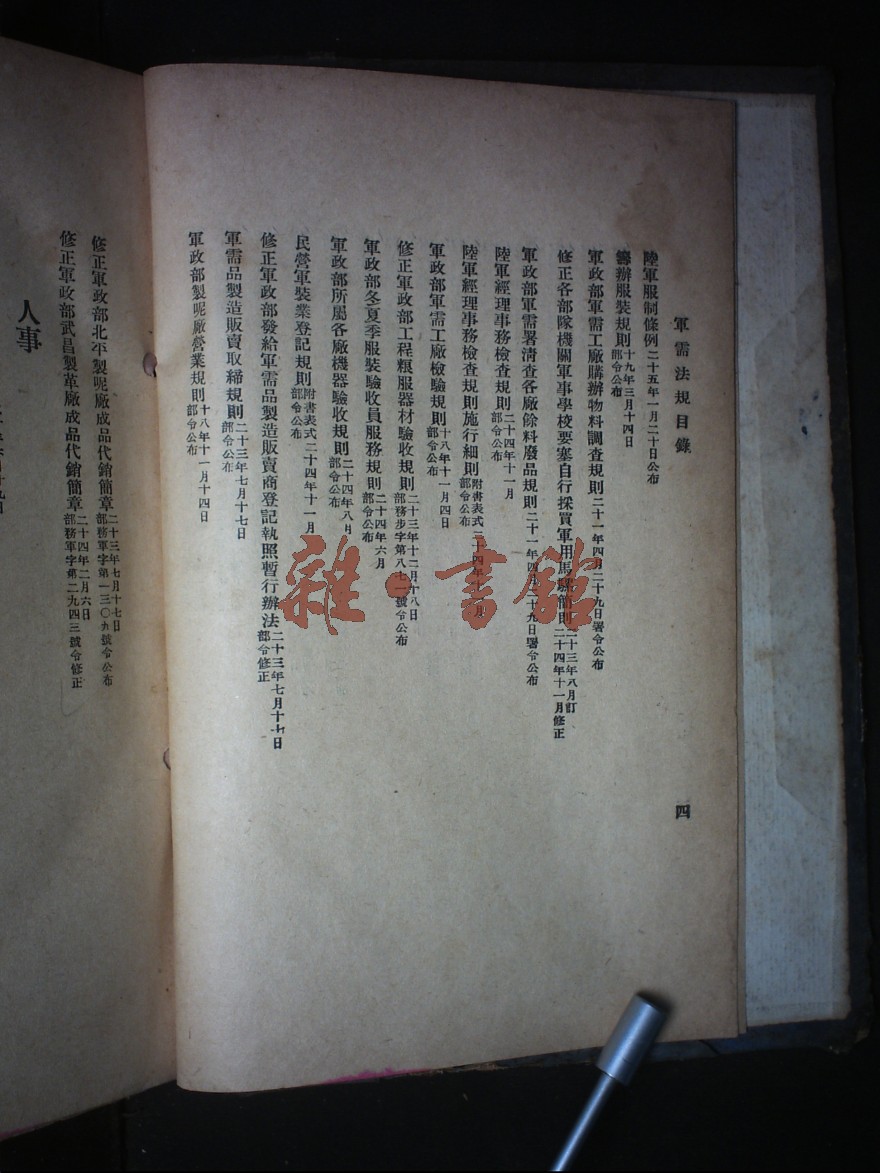 軍需法規目錄
四
陸軍服制條例 二十五年一月二十日公布
籌辦服裝規則 十九年三月十四日部令公布
軍政部軍需工廠購辦物料調查規則 二十一年四月二十九日署令公布
修正各部隊機關軍事學校要塞自行採買軍用馬騾簡則 二十三年八月訂二十四年十一月修正
軍政部軍需署清查各廠餘料廢品規則 二十一年四月二十九日署令公布
陸軍經理事務檢查規則 二十四年十一月部令公布
陸軍經理事務檢查規則施行細則 附書表式二十四年十一月部令公布
軍政部軍需工廠檢驗規則 十八年十一月四日部令公布
修正軍政部工程糧服器材驗收規則 二十三年十二月十八日部務步字第八七一號令公布
軍政部冬夏季服裝驗收員服務規則 二十四年六月部令公布
軍政部所屬各廠機器驗收規則 二十四年八月部令公布
民營軍裝業登記規則 附書表式二十四年十一月部令公布
修正軍政部發給軍需品製造販賣商登記執照暫行辦法 二十三年七月十七日部令修正
軍需品製造販賣取締規則 二十三年七月十七日部令公布
軍政部製呢廠營業規則 十八年十一月十四日部令公布
修正軍政部北平製呢廠成品代銷簡章 二十三年七月十七日部務軍字第一三〇九號令公布
修正軍政部武昌製革廠成品代銷簡章 二十四年二月六日部務軍字第二九四三號令修正
人事
雜·書館